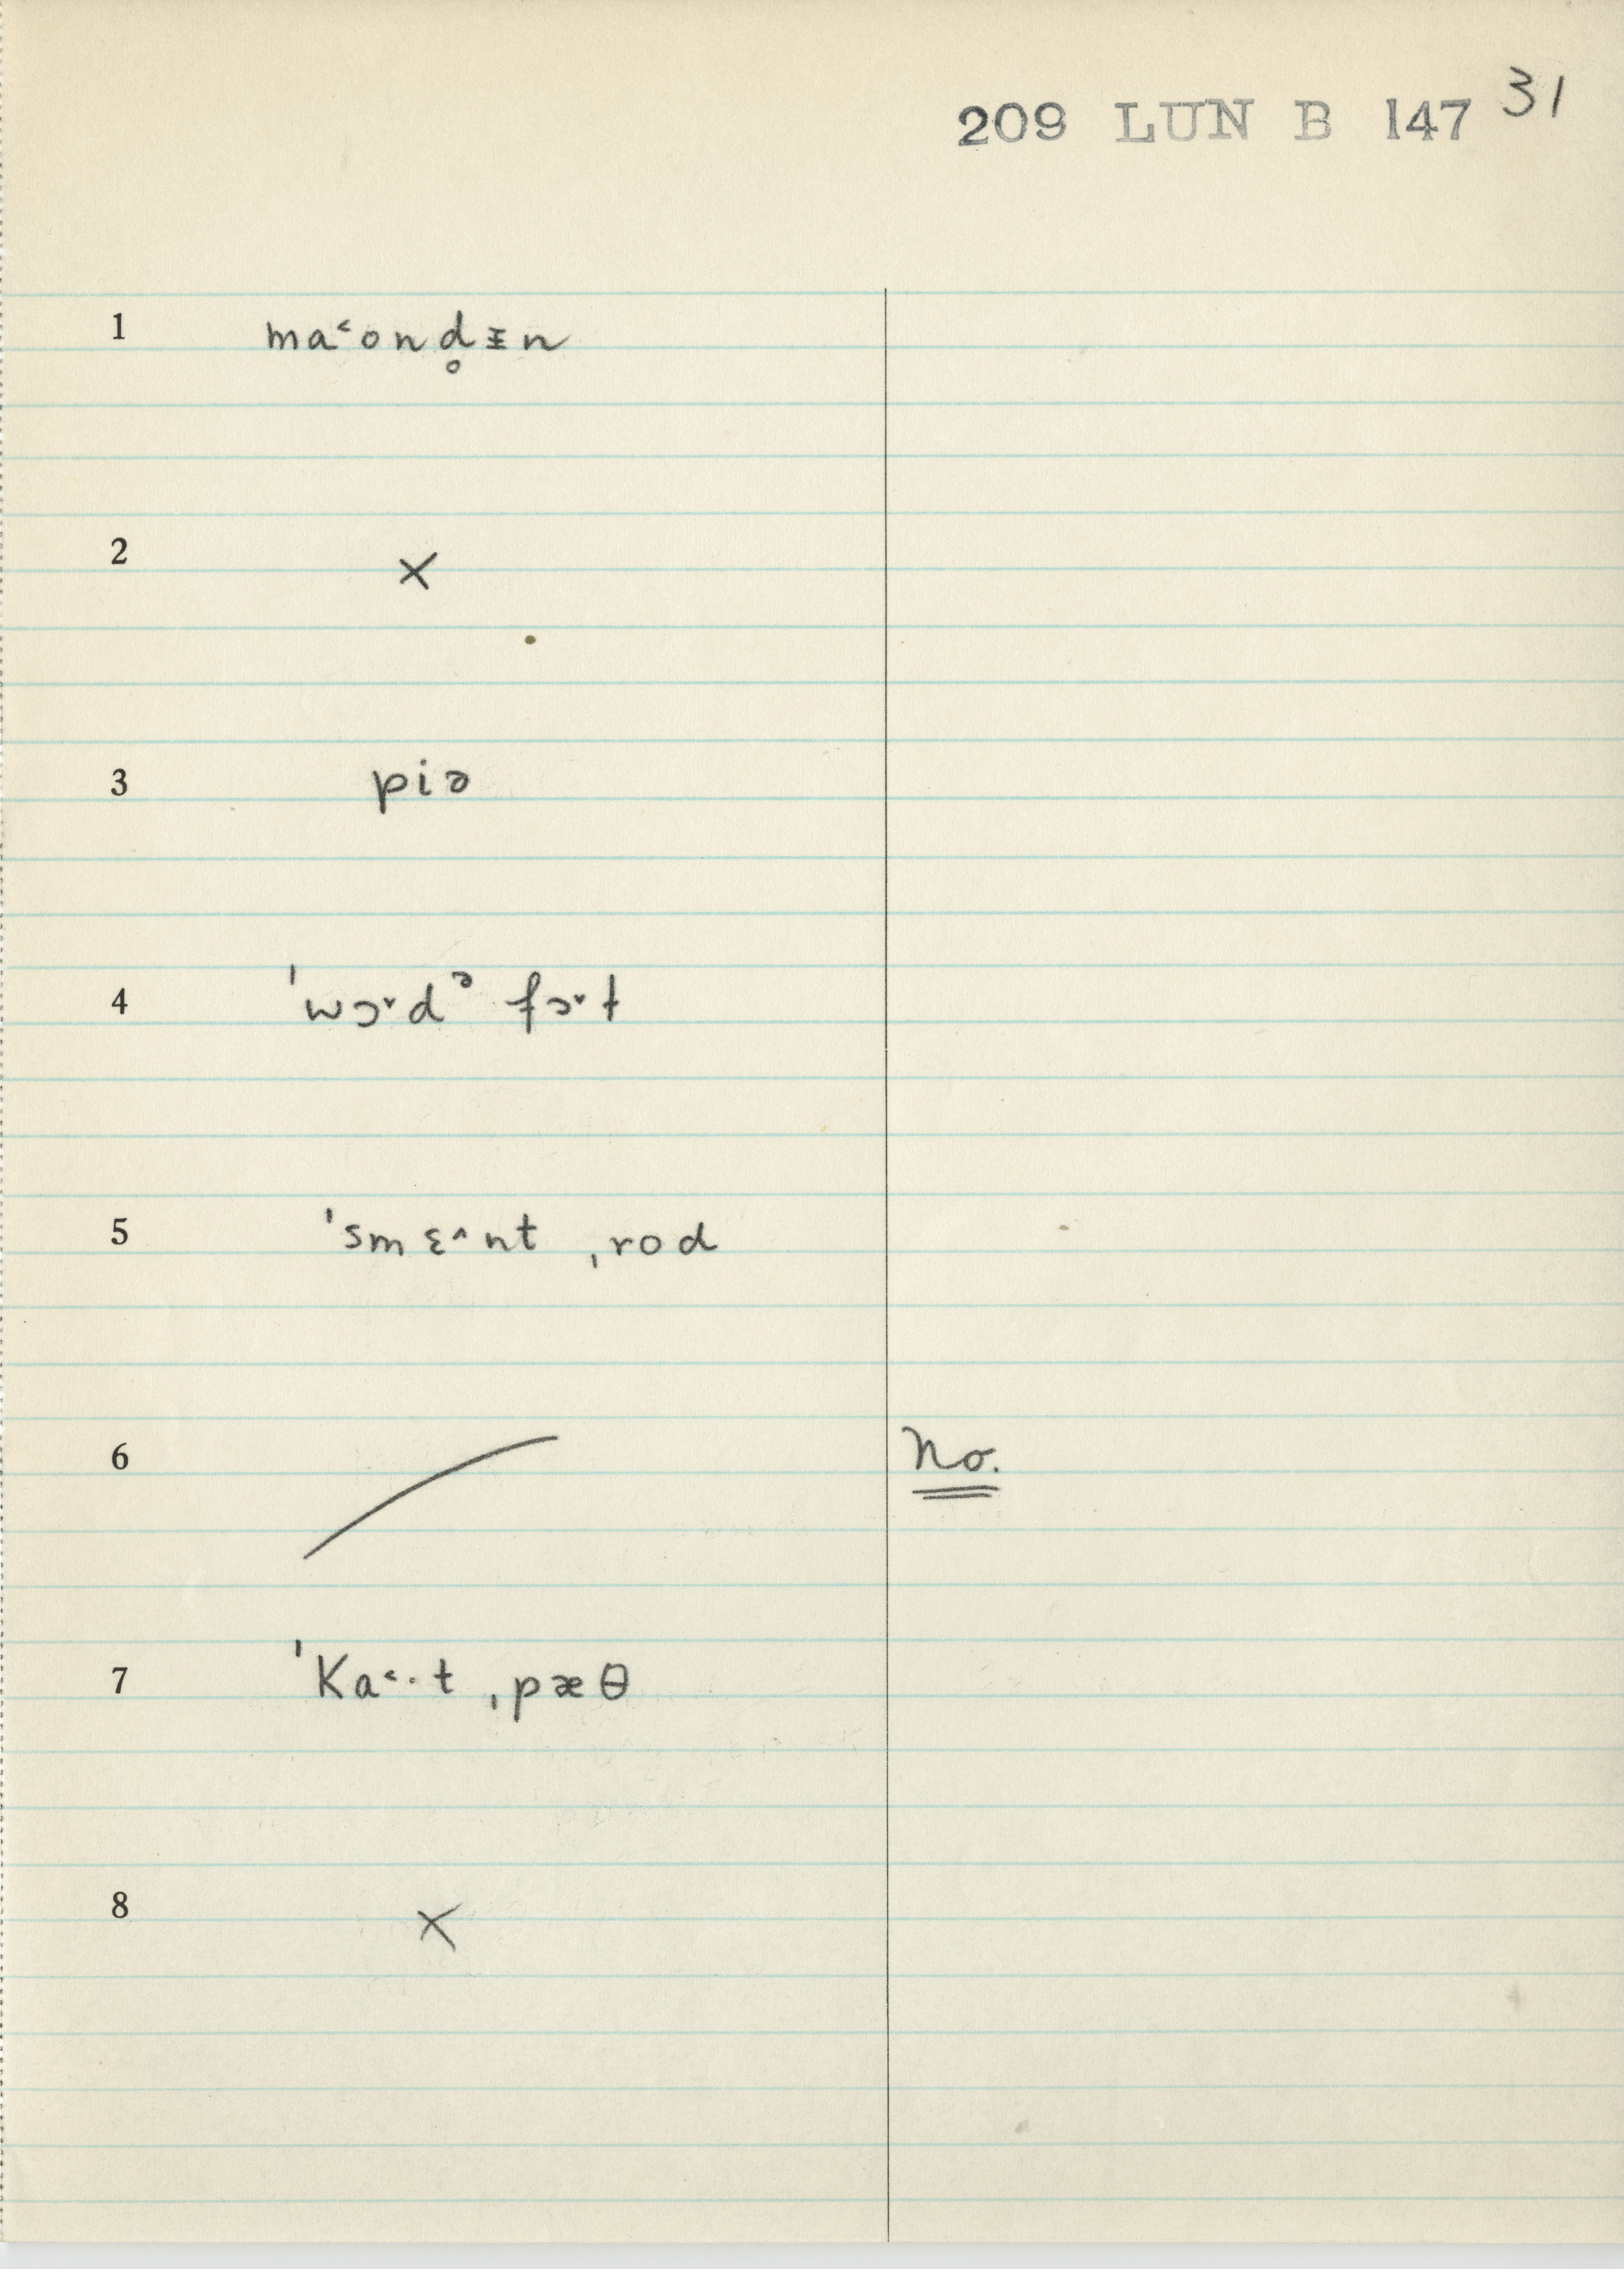 209 LUN B 147 31
1 ma˂ond̥ᵻn
2 ×
3 piə
4 ˈwɔ˅dᵊ fɔ˅t
5 ˈsmɛ˄nt ˌrod
6 No.
7 ˈKa˂·t ˌpæθ
8 ×